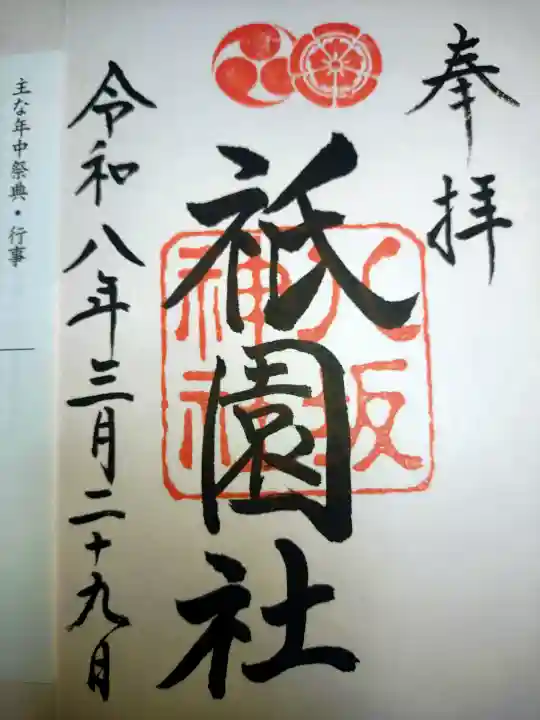 奉拝
祇園社
八坂
神社
令和八年三月二十九日
主な年中祭典・行事